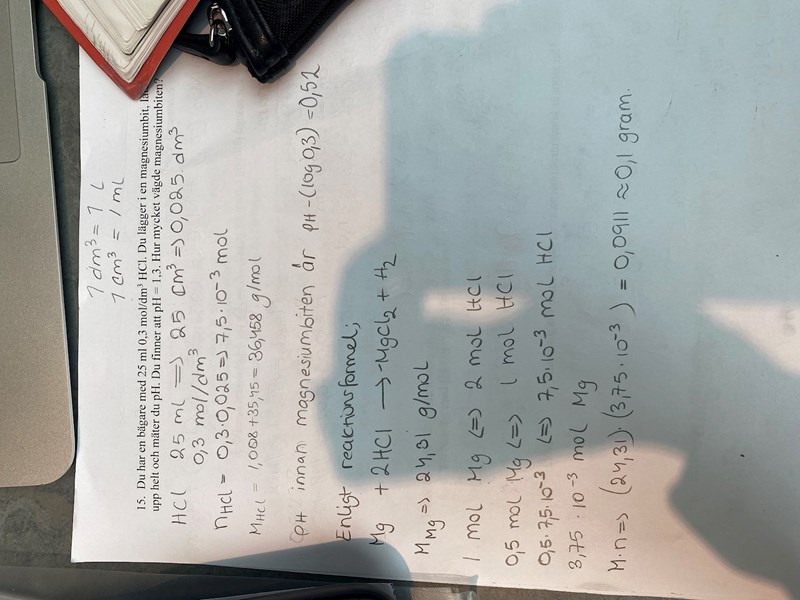 1 dm³ = 1 L
1 cm³ = 1 ml
15. Du har en bägare med 25 ml 0,3 mol/dm³ HCl. Du lägger i en magnesiumbit,
upp helt och mäter du pH. Du finner att pH = 1,3. Hur mycket vägde magnesiumbiten?
HCl 25 ml => 25 cm³ => 0,025 dm³
0,3 mol/dm³
nHCl = 0,3·0,025 => 7,5·10⁻³ mol
MHCl = 1,008 + 35,45 = 36,458 g/mol
pH innan magnesiumbiten är pH -(log 0,3) = 0,52
Enligt reaktionsformel;
Mg + 2HCl → MgCl₂ + H₂
MMg => 24,31 g/mol
1 mol Mg <=> 2 mol HCl
0,5 mol Mg <=> 1 mol HCl
0,5·7,5·10⁻³ <=> 7,5·10⁻³ mol HCl
3,75·10⁻³ mol Mg
M·n => (24,31)·(3,75·10⁻³) = 0,0911 ≈ 0,1 gram.